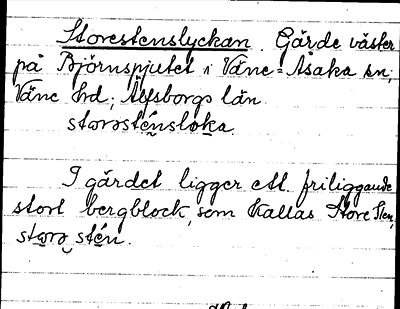 Storestenslyckan. Gärde väster
på Björnspjutet i Väne-Åsaka sn;
Väne hd; Älfsborgs län.
storosténsloka.
I gärdet ligger ett friliggande
stort bergblock, som kallas Store Sten,
storo stén.